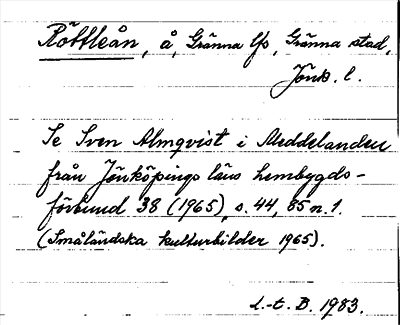 Röttleån, å, Gränna lfs, Gränna stad,
Jönk. l.
Se Sven Almqvist i Meddelanden
från Jönköpings läns hembygds-
förbund 38 (1965), s. 44, 85 n. 1.
(Småländska kulturbilder 1965).
L.-t. B. 1983.